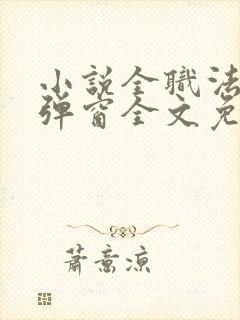 小說全職法
彈窗全文免
蕭意涼